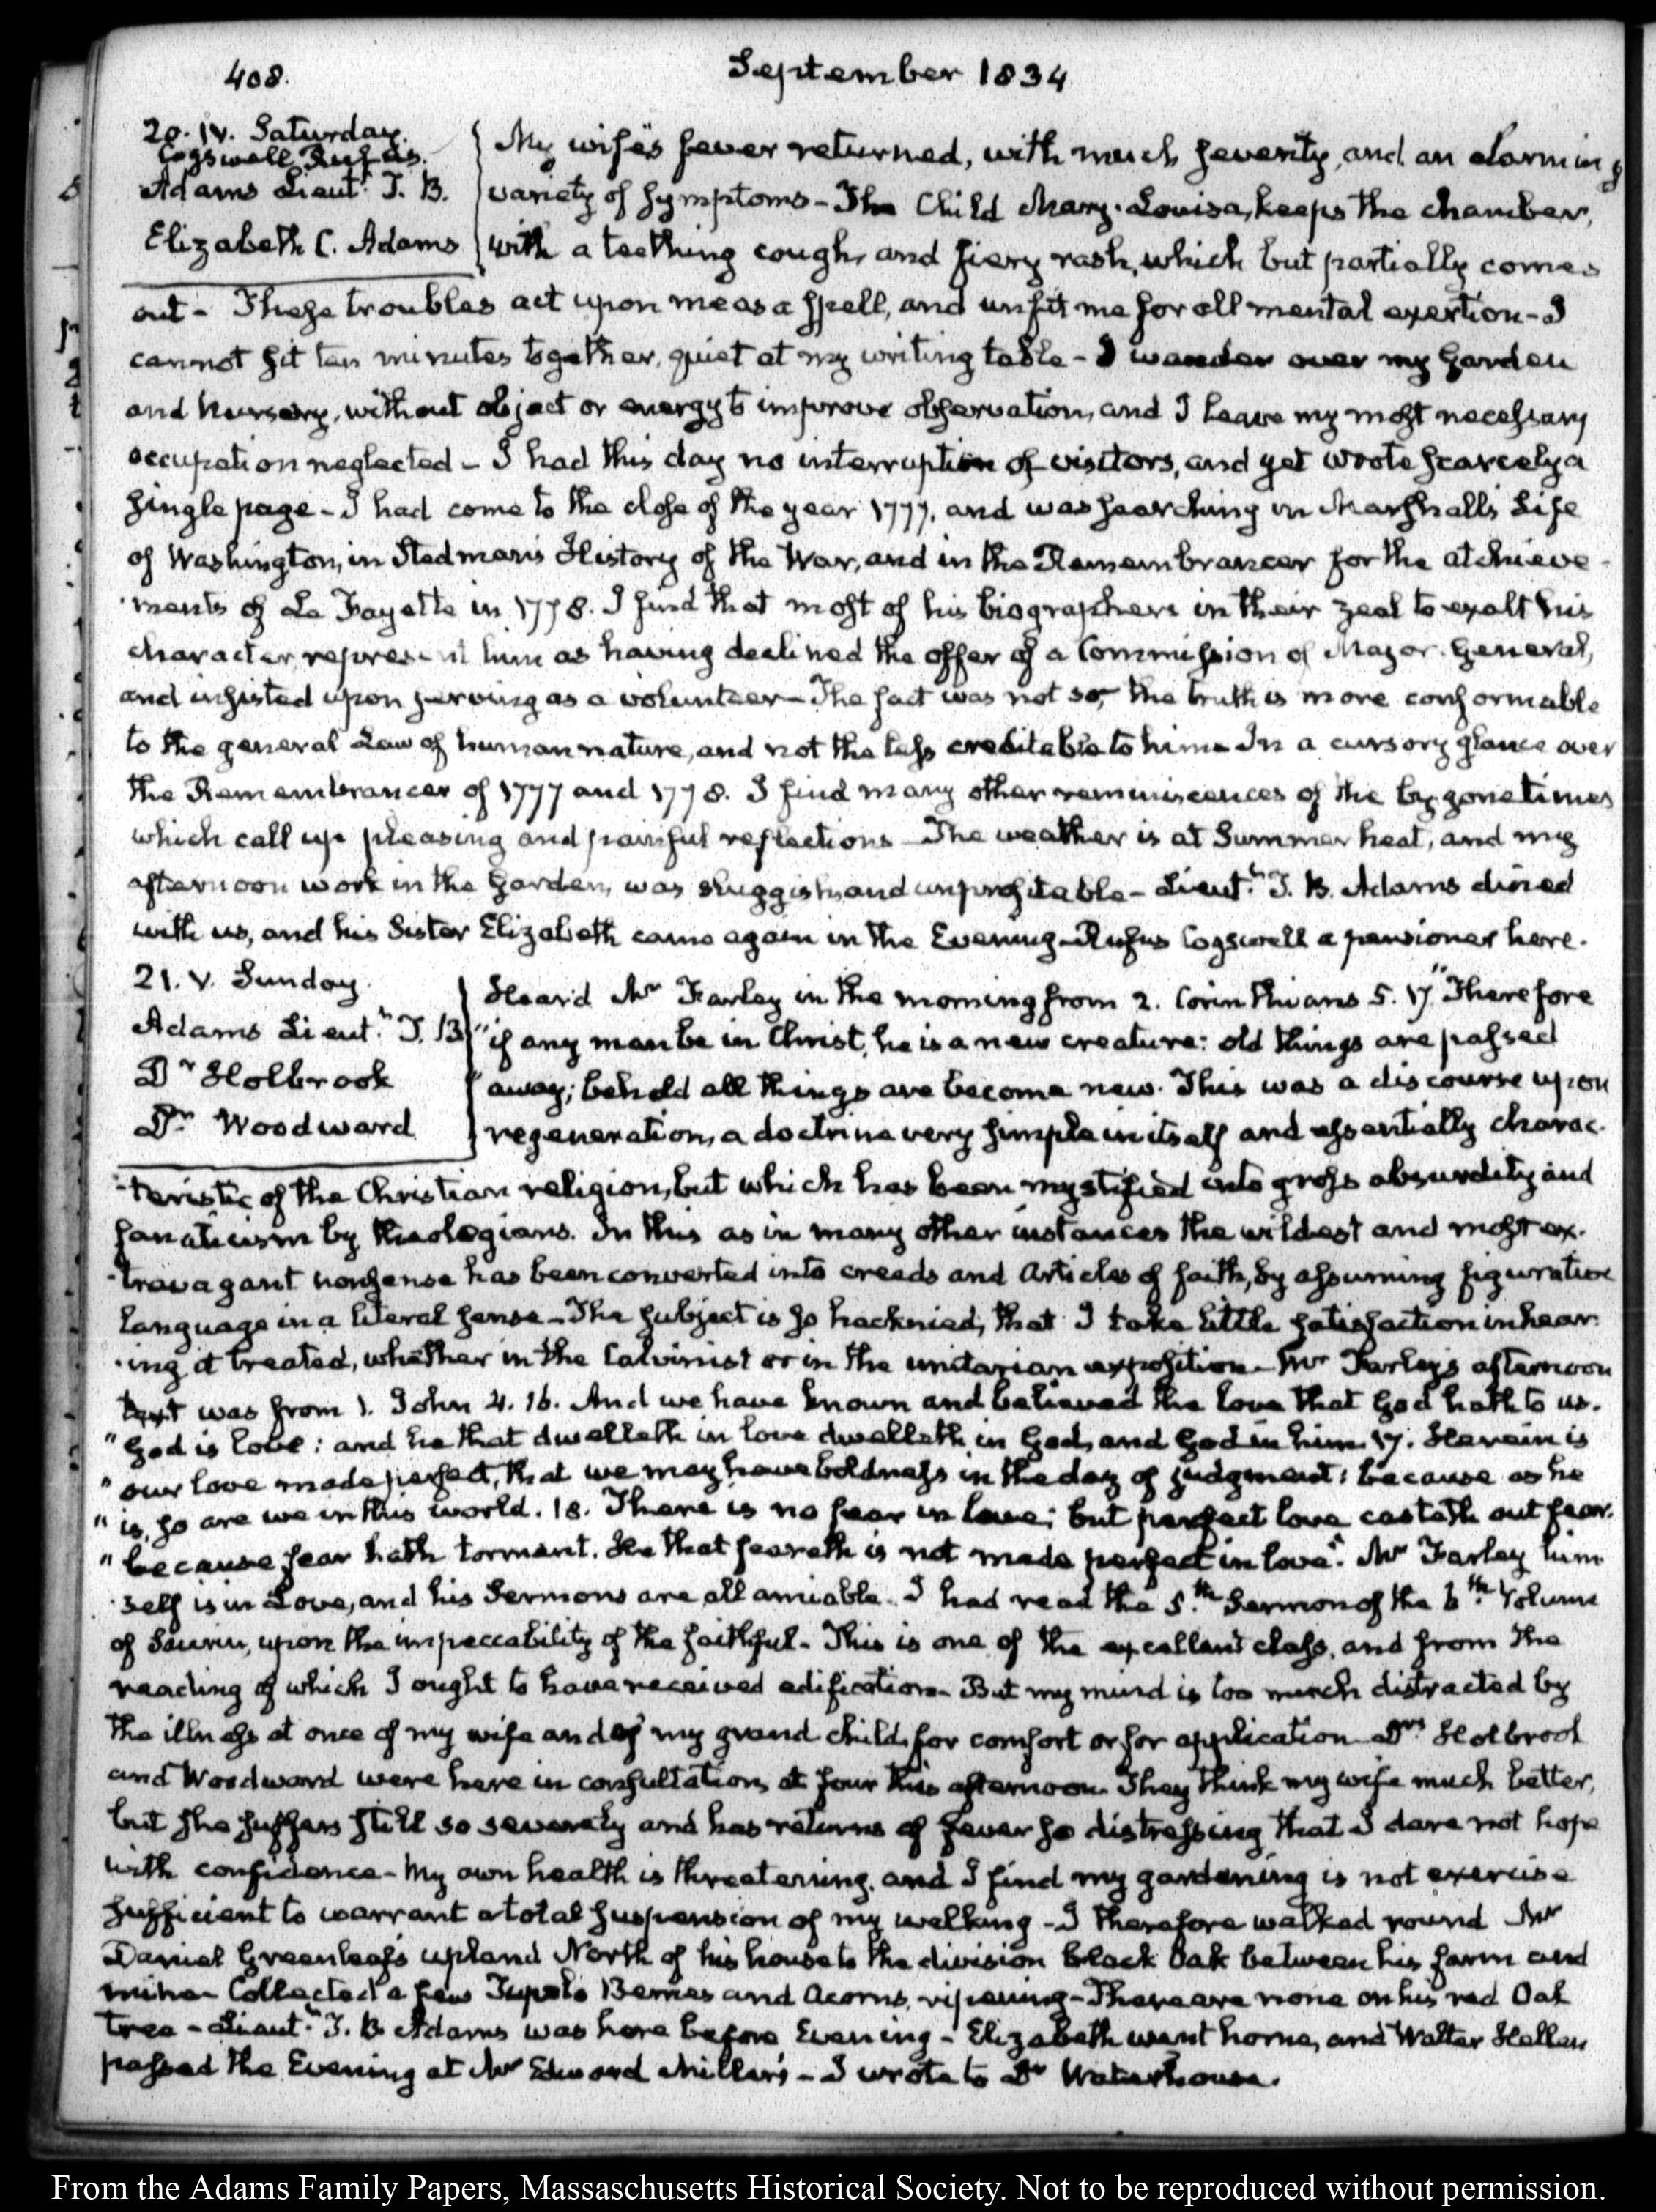 408.
September 1834
20. IV. Saturday.
Cogswell Rufus.
Adams Lieutt. T. B.
Elizabeth C. Adams
My wife's fever returned, with much severity, and an alarming
variety of symptoms - The Child Mary-Louisa, keeps the chamber,
with a teething cough, and fiery rash, which but partially comes
out - These troubles act upon me as a spell, and unfit me for all mental exertion - I
cannot sit ten minutes together, quiet at my writing table - I wander over my Garden
and Nursery, without object or energy to improve observation, and I leave my most necessary
occupation neglected - I had this day no interruption of visitors, and yet wrote scarcely a
single page - I had come to the close of the year 1777, and was searching in Marshall's Life
of Washington, in Stedman's History of the War, and in the Remembrancer for the atchieve-
-ments of La Fayette in 1778. I find that most of his biographers in their zeal to exalt his
character, represent him as having declined the offer of a Commission of Major-General,
and insisted upon serving as a volunteer - The fact was not so, the truth is more conformable
to the general Law of human nature, and not the less creditable to him - In a cursory glance over
the Remembrancer of 1777 and 1778. I find many other reminiscences of the bygone times
which call up pleasing and painful reflections - The weather is at Summer heat, and my
afternoon work in the Garden, was sluggish, and unprofitable - Lieutt. T. B. Adams dined
with us, and his Sister Elizabeth came again in the Evening - Rufus Cogswell a pensioner here.
21. V. Sunday.
Adams Lieutt. T. B
Dr Holbrook
Dr. Woodward
Heard Mr Farley in the morning from 2. Corinthians 5. 17. "Therefore
"if any man be in Christ, he is a new creature: old things are passed
"away; behold all things are become new. This was a discourse upon
regeneration, a doctrine very simple in itself and essentially charac-
-teristic of the Christian religion, but which has been mystified into gross absurdity and
fanaticism by theologians. In this as in many other instances the wildest and most ex-
-travagant nonsense has been converted into creeds and Articles of faith, by assuming figurative
language in a literal sense - The subject is so hacknied, that I take little satisfaction in hear-
-ing it treated, whether in the Calvinist or in the unitarian exposition - Mr Farley's afternoon
text was from 1. John 4. 16. And we have known and believed the love that God hath to us.
"God is love: and he that dwelleth in love dwelleth in God, and God in him. 17. Herein is
"our love made perfect, that we may have boldness in the day of judgment: because as he
"is, so are we in this world. 18. There is no fear in love; but perfect love casteth out fear:
"because fear hath torment. He that feareth is not made perfect in love". Mr Farley him-
-self is in Love, and his Sermons are all amiable. I had read the 5.th Sermon of the 6th. Volume
of Saurin, upon the impeccability of the faithful - This is one of the excellent class, and from the
reading of which I ought to have received edification - But my mind is too much distracted by
the illness at once of my wife and of my grand child, for comfort or for application - Drs. Holbrook
and Woodward were here in consultation, at four this afternoon. They think my wife much better,
but she suffers still so severely and has returns of fever so distressing that I dare not hope
with confidence - My own health is threatening, and I find my gardening is not exercise
sufficient to warrant a total suspension of my walking - I therefore walked round Mr
Daniel Greenleaf's upland North of his house to the division black Oak between his farm and
mine - Collected a few Tupelo Berries and Acorns, ripening - There are none on his red Oak
tree - Lieutt. T. B. Adams was here before Evening - Elizabeth went home, and Walter Hellen
passed the Evening at Mr Edward Miller's - I wrote to Dr Waterhouse.
From the Adams Family Papers, Massachusetts Historical Society. Not to be reproduced without permission.